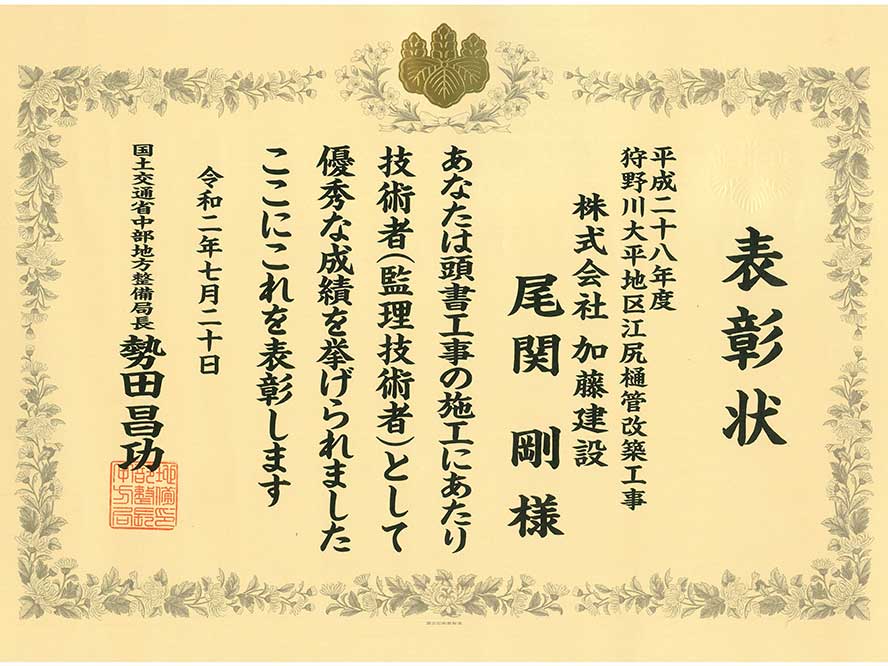 表彰状
平成二十八年度
狩野川大平地区江尻樋管改築工事
株式会社 加藤建設
尾関 剛 様
あなたは頭書工事の施工にあたり
技術者(監理技術者)として
優秀な成績を挙げられました
ここにこれを表彰します
令和二年七月二十日
国土交通省中部地方整備局長 勢田昌功